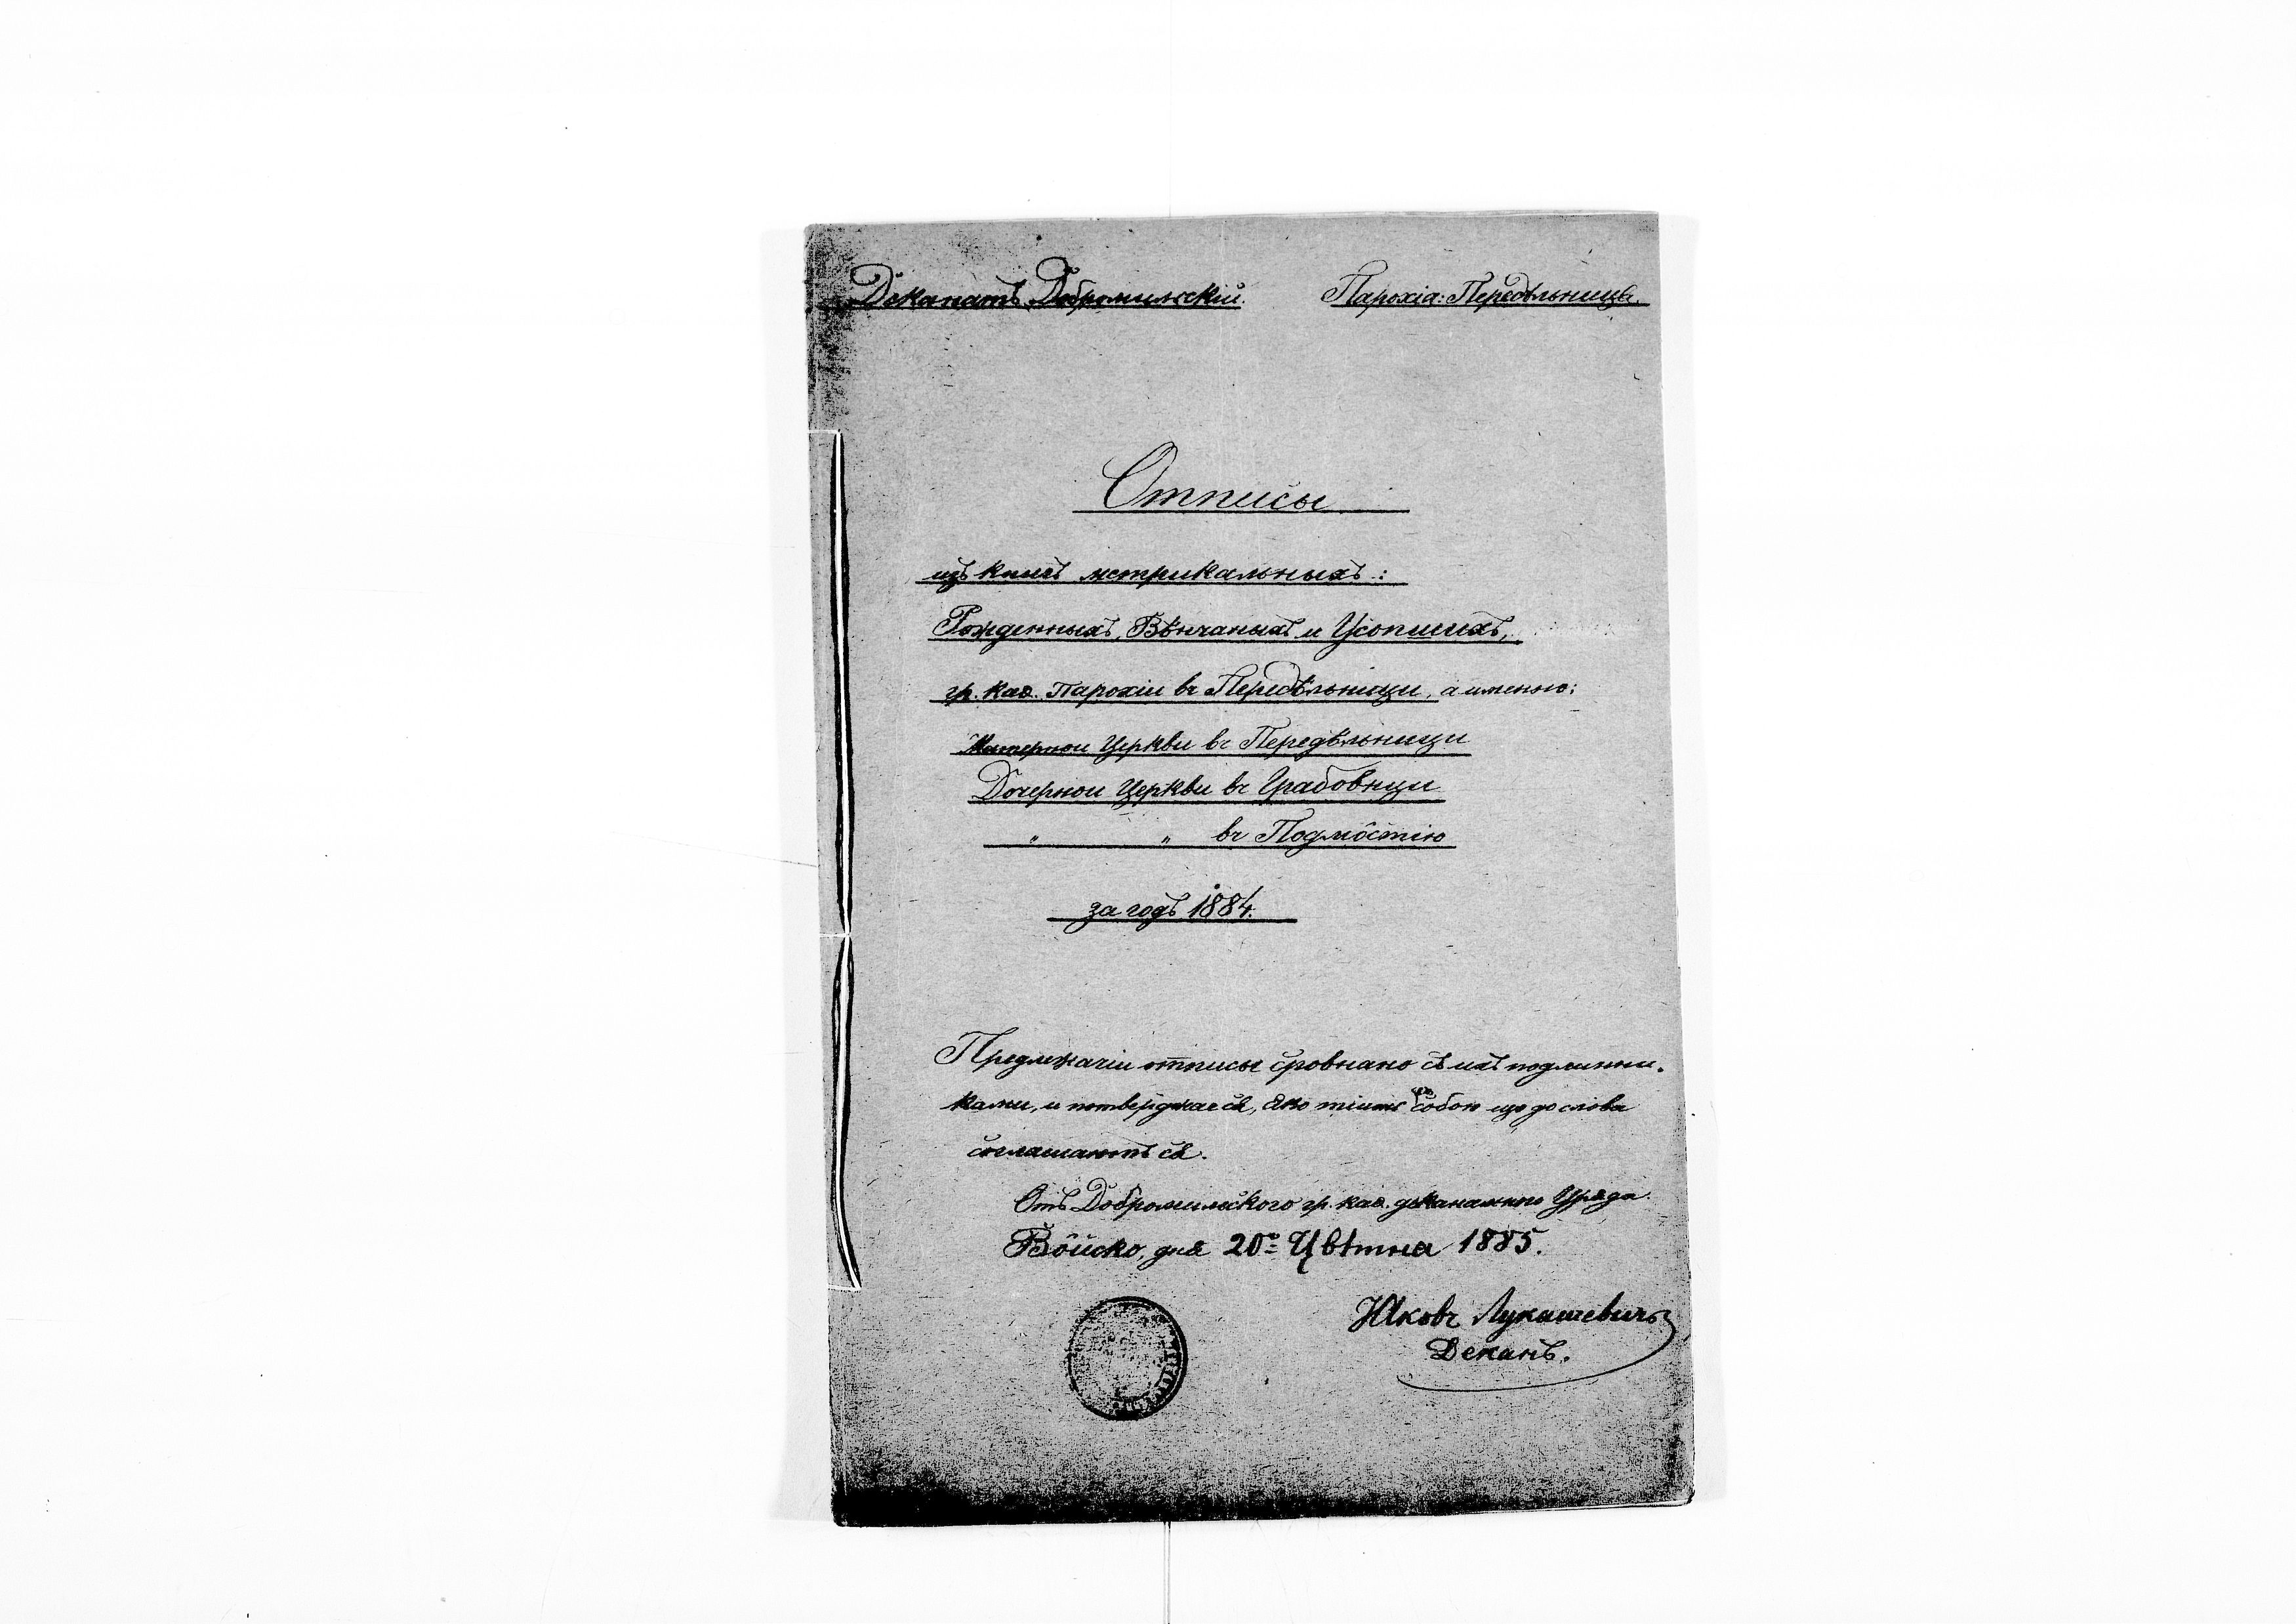 Деканатъ Добромильскій. Парохіа: Передѣльница.
Отписы
изъ книгъ метрикальныхъ:
Рожденныхъ, Вѣнчаныхъ и Усопшихъ,
гр. каѳ. Парохіи въ Передѣльници, а именно:
Матерной Церкви въ Передѣльници
Дочерной Церкви въ Грабовници
" " въ Подмôстію
за годъ 1884.
Предлежачіи отписы сровнано съ ихъ подлинни-
ками, и потверджаеся, яко тіиже съ собою що до слова
соглашаютъ ся.
Отъ Добромильского гр. каѳ. деканального Уряда
Вôйско, дня 20го Цвѣтня 1885.
Яковъ Лукашевичь
Деканъ.